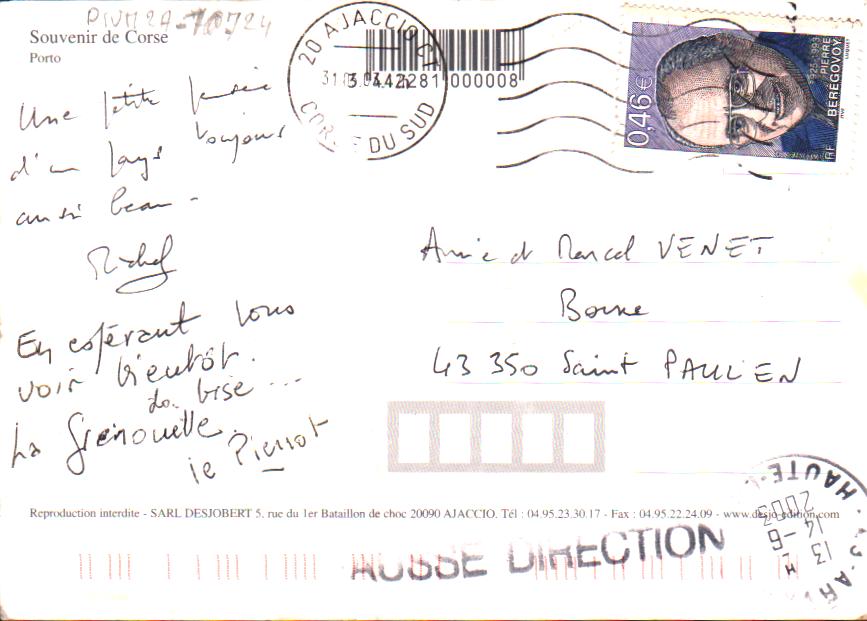 Souvenir de Corse
Porto
Une petite pensée
d'un pays toujours
aussi beau -
Michel
En espérant vous
voir bientôt.
La bise ...
La Grenouille.
ie Pierrot
20 AJACCIO CT
CORSE DU SUD
3.04.42281 000008
0,46 €
PIERRE
BÉRÉGOVOY
1925-1993
RF
Annie et Marcel VENET
Borne
43 350 Saint PAULIEN
Reproduction interdite - SARL DESJOBERT 5, rue du 1er Bataillon de choc 20090 AJACCIO. Tél : 04.95.23.30.17 - Fax : 04.95.22.24.09 - www.desjo-edition.com
FAUSSE DIRECTION
13 H
14 -6
2003
HAUTE-L